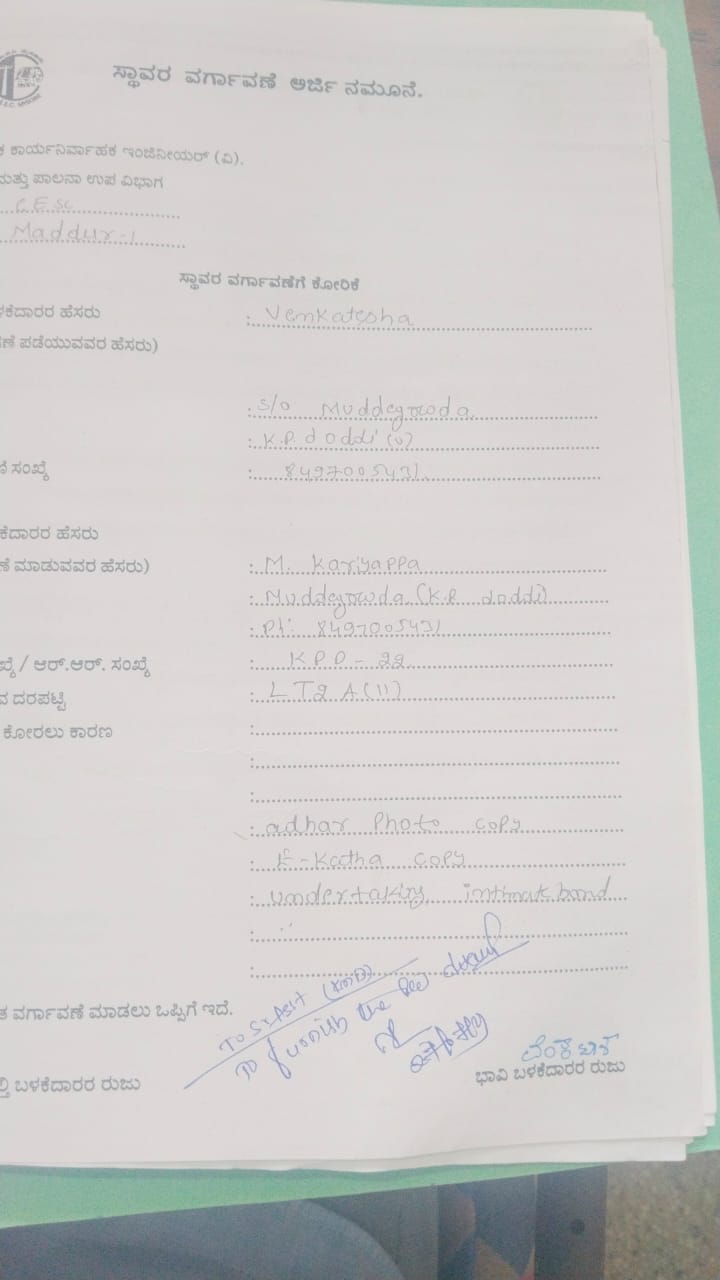 ಸ್ಥಾವರ ವರ್ಗಾವಣೆ ಅರ್ಜಿ ನಮೂನೆ.
ಕಾರ್ಯನಿರ್ವಾಹಕ ಇಂಜಿನೀಯರ್ (ವಿ),
ಮತ್ತು ಪಾಲನಾ ಉಪ ವಿಭಾಗ
CESC
Maddur-1
ಸ್ಥಾವರ ವರ್ಗಾವಣೆಗೆ ಕೋರಿಕೆ
ಕೆದಾರರ ಹೆಸರು : Venkatesha
ಣೆ ಪಡೆಯುವವರ ಹೆಸರು)
: S/o Muddegowda
: K.P. doddi (v)
ಸಂಖ್ಯೆ : 8497005431
ಕೆದಾರರ ಹೆಸರು
ಣೆ ಮಾಡುವವರ ಹೆಸರು) : M. Kariyappa
: Muddegowda (K.P. doddi)
: Ph: 8497005431
/ ಆರ್.ಆರ್. ಸಂಖ್ಯೆ : KPD - 22
ದರಪಟ್ಟಿ : LT2 A(11)
ಕೋರಲು ಕಾರಣ :
: adhar Photo copy
: E-Katha copy
: undertaking
ವರ್ಗಾವಣೆ ಮಾಡಲು ಒಪ್ಪಿಗೆ ಇದೆ.
To furnish the
ಬಳಕೆದಾರರ ರುಜು
ಭಾವಿ ಬಳಕೆದಾರರ ರುಜು